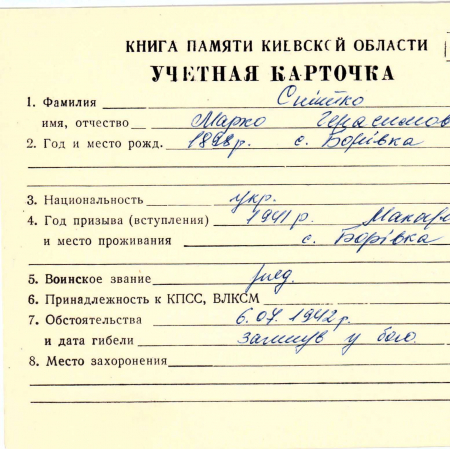 КНИГА ПАМЯТИ КИЕВСКОЙ ОБЛАСТИ
УЧЕТНАЯ КАРТОЧКА
1. Фамилия
имя, отчество Марко Герасимов
2. Год и место рожд. 1898р. с. Борівка
3. Национальность укр.
4. Год призыва (вступления) 1941 р. Макар
и место проживания с. Борівка
5. Воинское звание ряд.
6. Принадлежность к КПСС, ВЛКСМ
7. Обстоятельства 6.07.1942 р.
и дата гибели загинув у бою
8. Место захоронения